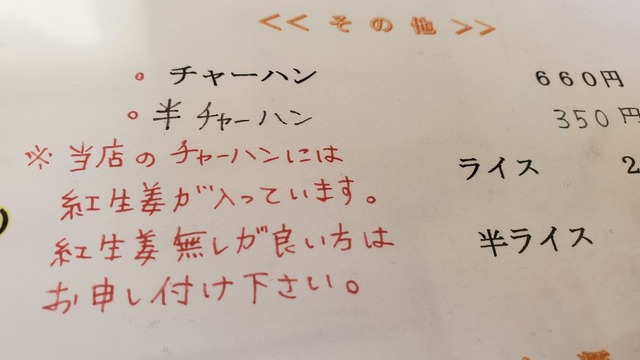 << その他 >>
。チャーハン 660円
。半チャーハン 350円
※当店のチャーハンには
紅生姜が入っています。
紅生姜無しが良い方は
お申し付け下さい。
ライス 2
半ライス